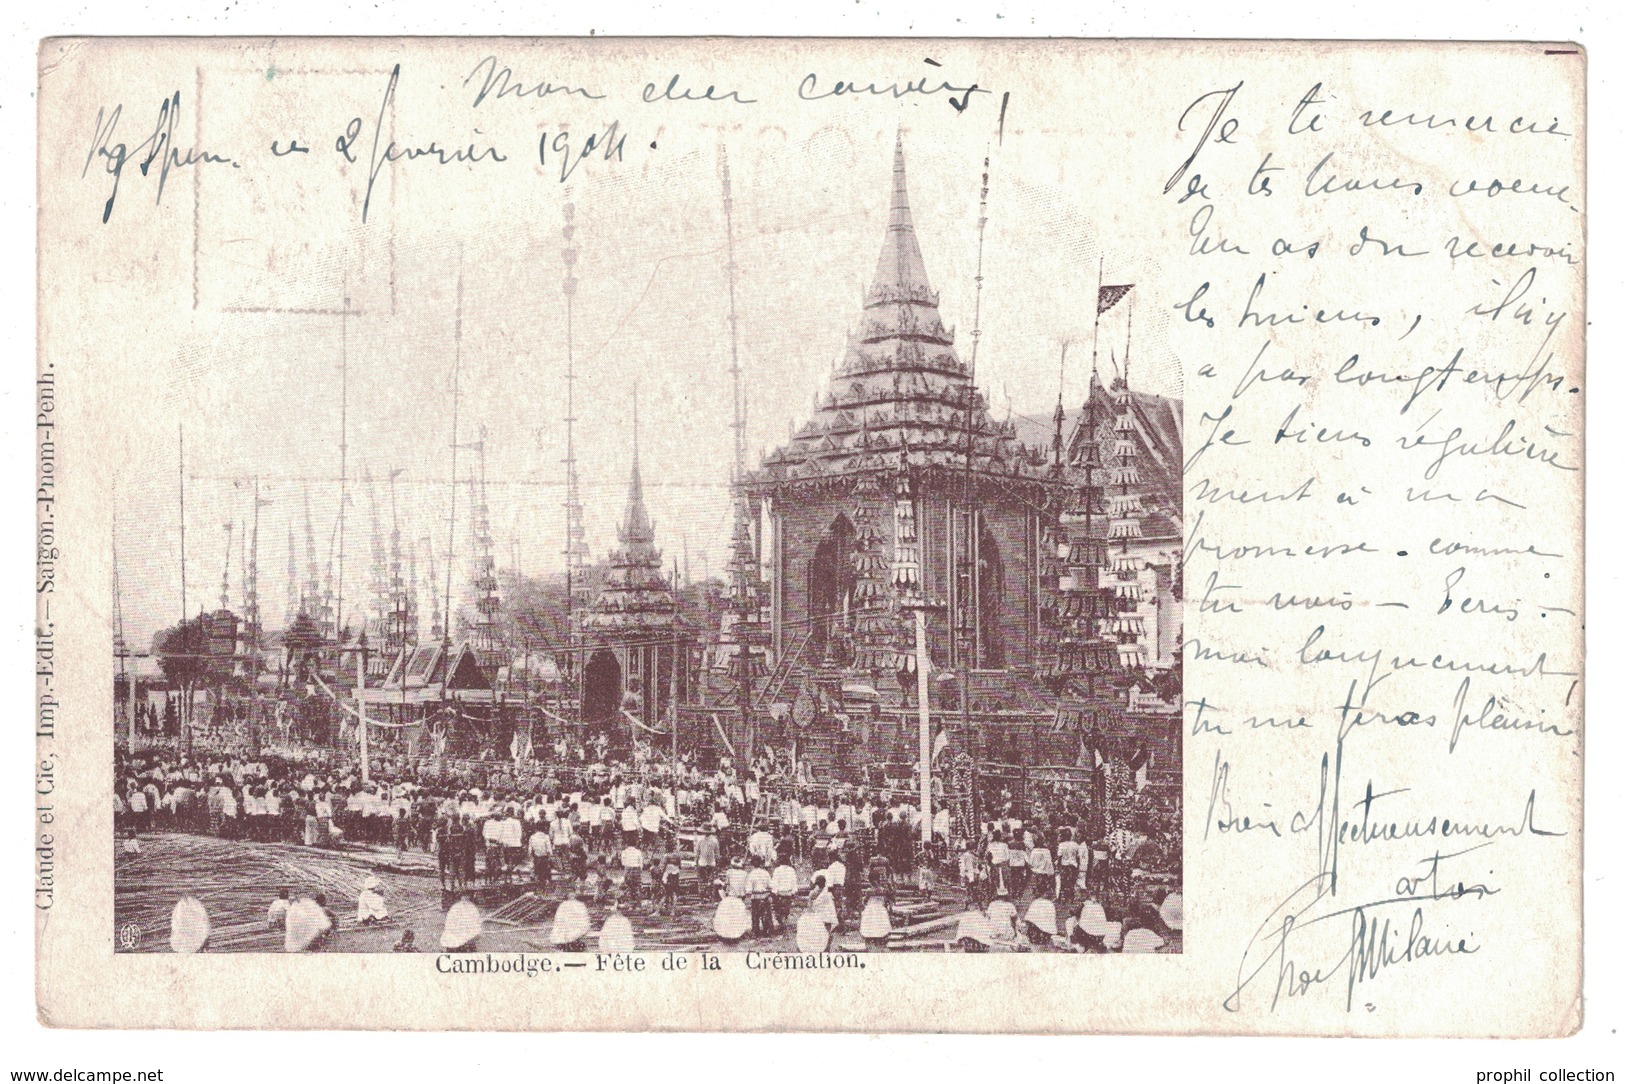 Mon cher
ce 2 février 1904.
Je te remercie
de tes bons voeux.
Tu as dû recevoir
les miens, il n'y
a pas longtemps.
Je tiens régulière
ment à ma
promesse. comme
tu vois — Ecris-
moi longuement,
tu me feras plaisir.
Bien affectueusement
à toi
Claude et Cie, Imp.-Edit.— Saïgon.-Pnom-Penh.
Cambodge.— Fête de la Crémation.
delcampe.net
prophil collection